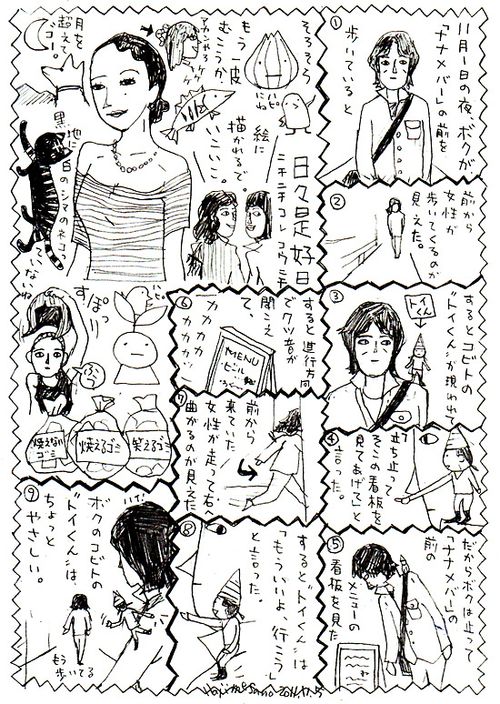 日々是好日
ニチニチコレコウニチ
そろそろ
もう一皮
むこうか。
絵に
描かれるで。
いこいこ。
月を
超えて
ゴー。
黒地に白のシマのネコって
いないね
すぽっ
燃えないゴミ
燃えるゴミ
笑えるゴミ
①
11月1日の夜、ボクが
「ナナメバー」の前を
歩いていると
②
前から
女性が
歩いてくるのが
見えた。
③
するとコビトの
"トイくん"が現われて
トイくん
④
「立ち止って
そこの看板を
見てあげて」と
言った。
⑤
だからボクは止って
「ナナメバー」の
前の
メニューの
看板を見た
⑥
すると進行方向
でクツ音が
聞こえ
て、
カカカカ
カカカカ
MENU
ビール
⑦
前から
来ていた
女性が走って右へ
曲がるのが見えた
⑧
すると"トイくん"は
「もういいよ、行こう」
と言った。
⑨
ボクのコビトの
"トイくん"は、
ちょっと
やさしい。
もう歩いてる